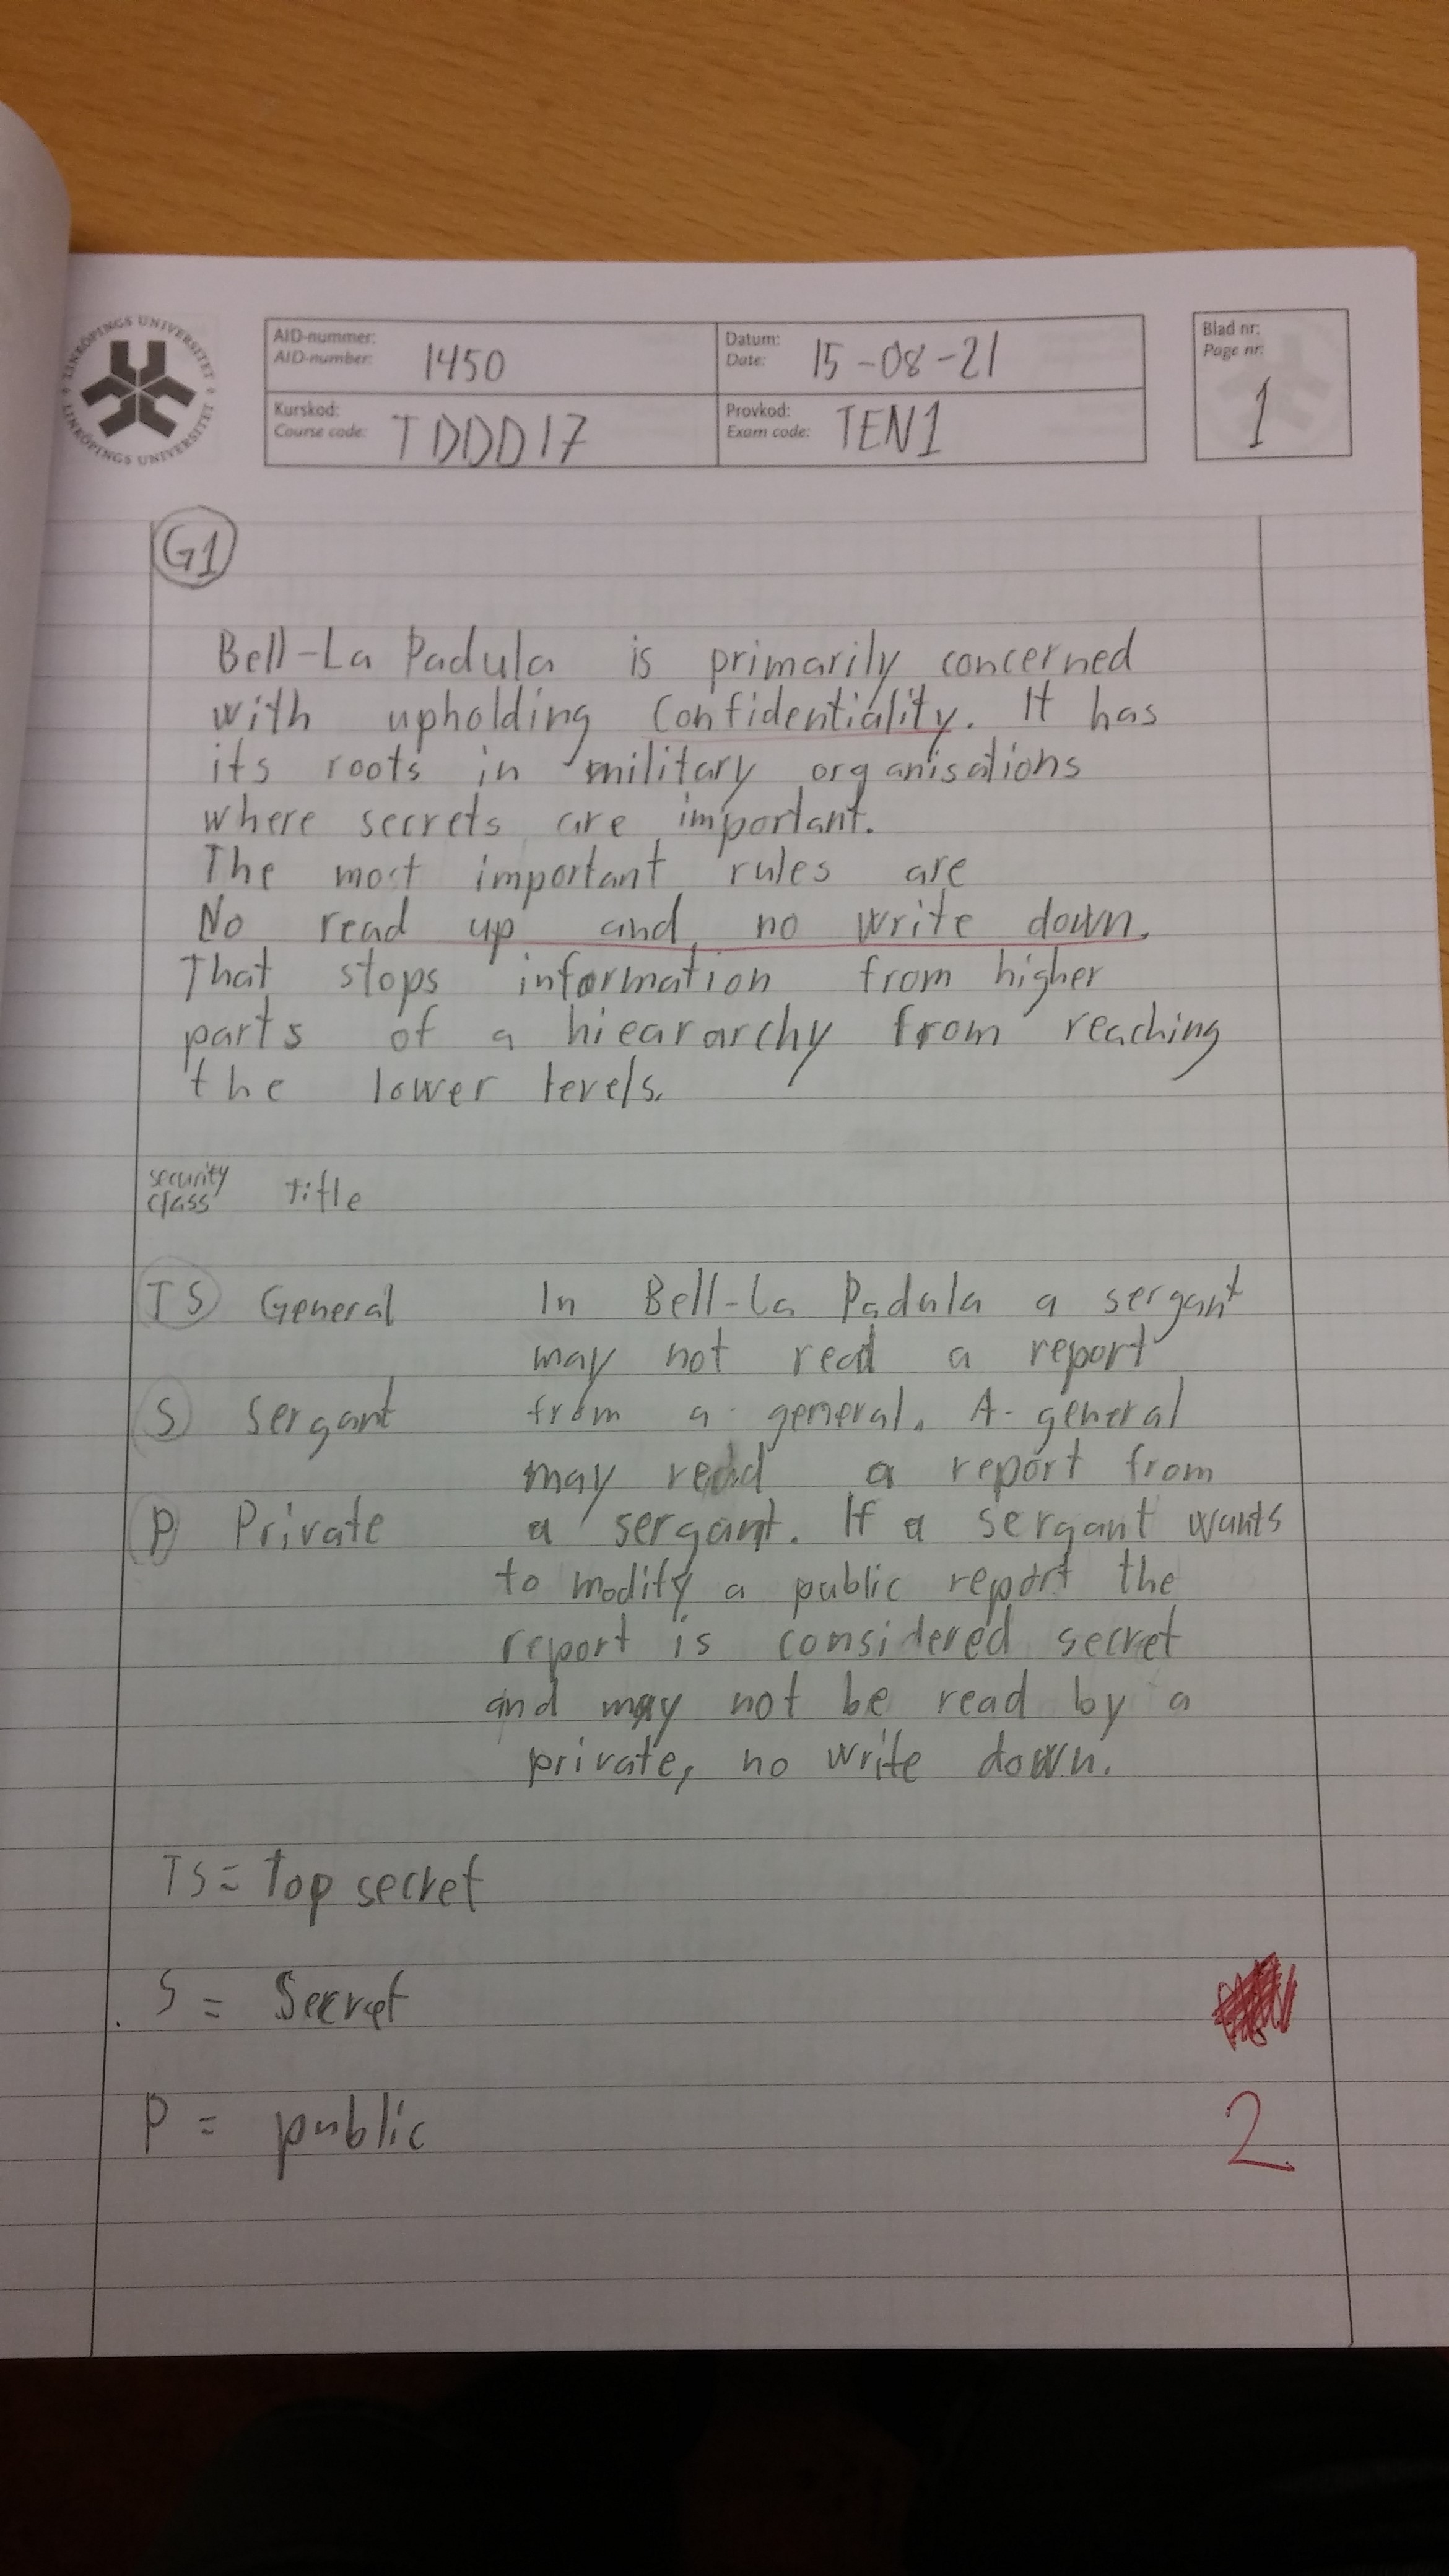 LINKÖPINGS UNIVERSITET
LINKÖPINGS UNIVERSITET
AID-nummer:
AID-number: 1450
Datum:
Date: 15-08-21
Blad nr:
Page nr:
1
Kurskod:
Course code: TDDD17
Provkod:
Exam code: TEN1
G1
Bell-La Padula is primarily concerned
with upholding confidentiality. It has
its roots in military organisations
where secrets are important.
The most important rules are
No read up and no write down.
That stops information from higher
parts of a hieararchy from reaching
the lower levels.
security
class title
TS General In Bell-La Padula a sergant
may not read a report
S Sergant from a general. A general
may read a report from
P Private a sergant. If a sergant wants
to modify a public report the
report is considered secret
and may not be read by a
private, no write down.
TS = Top secret
S = Secret
P = public
2